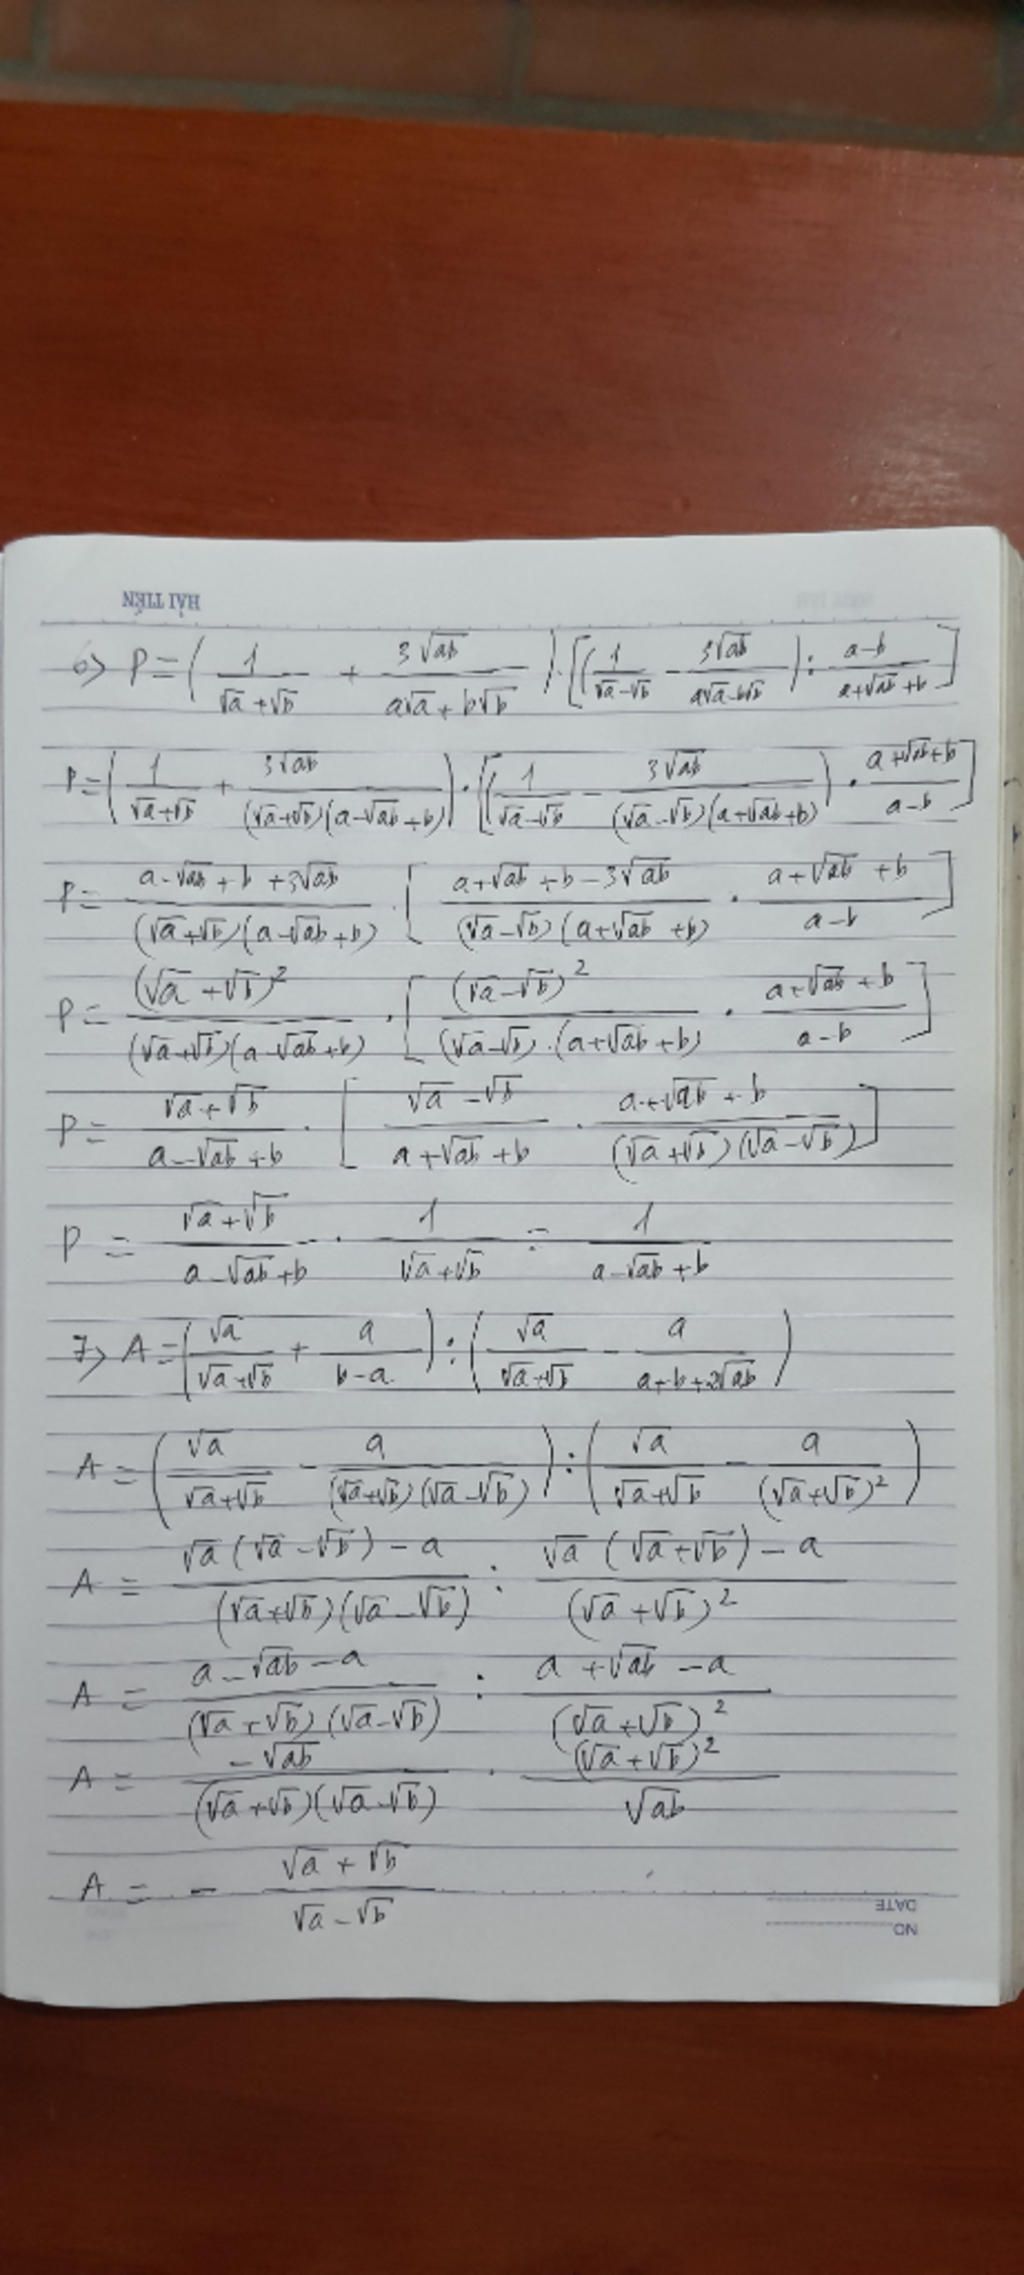 HẢI TIẾN
6> P = (1/(√a+√b) + 3√ab/(a√a+b√b)) · [(1/(√a-√b) - 3√ab/(a√a-b√b)) : (a-b)/(a+√ab+b)]
P = (1/(√a+√b) + 3√ab/((√a+√b)(a-√ab+b))) · [(1/(√a-√b) - 3√ab/((√a-√b)(a+√ab+b))) · (a+√ab+b)/(a-b)]
P = (a-√ab+b+3√ab)/((√a+√b)(a-√ab+b)) · [(a+√ab+b-3√ab)/((√a-√b)(a+√ab+b)) · (a+√ab+b)/(a-b)]
P = (√a+√b)²/((√a+√b)(a-√ab+b)) · [(√a-√b)²/((√a-√b)·(a+√ab+b)) · (a+√ab+b)/(a-b)]
P = (√a+√b)/(a-√ab+b) · [(√a-√b)/(a+√ab+b) · (a+√ab+b)/((√a+√b)(√a-√b))]
P = (√a+√b)/(a-√ab+b) · 1/(√a+√b) = 1/(a-√ab+b)
7> A = (√a/(√a+√b) + a/(b-a)) : (√a/(√a+√b) - a/(a+b+2√ab))
A = (√a/(√a+√b) - a/((√a+√b)(√a-√b))) : (√a/(√a+√b) - a/(√a+√b)²)
A = (√a(√a-√b)-a)/((√a+√b)(√a-√b)) : (√a(√a+√b)-a)/(√a+√b)²
A = (a-√ab-a)/((√a+√b)(√a-√b)) : (a+√ab-a)/(√a+√b)²
A = -√ab/((√a+√b)(√a-√b)) · (√a+√b)²/√ab
A = - (√a+√b)/(√a-√b)
DATE
NO